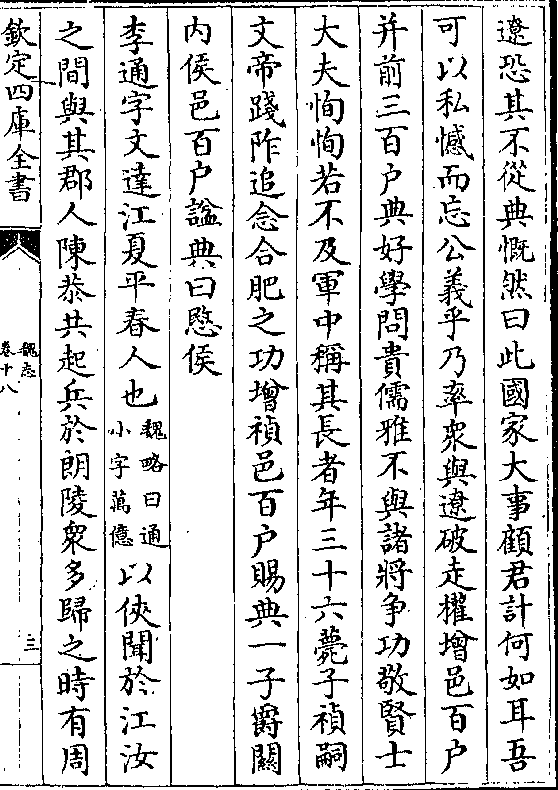 遼恐其不從典慨然曰此國家大事顧君計何如耳吾
可以私憾而忘公義乎乃率衆與遼破走權增邑百户
并前三百户典好學問貴儒雅不與諸將争功敬賢士
大夫恂恂若不及軍中稱其長者年三十六薨子禎嗣
文帝踐阼追念合肥之功增禎邑百户賜典一子爵關
内侯邑百户諡典曰愍侯
李通字文達江夏平春人也魏略曰通小字萬億以俠聞於江汝
之間與其郡人陳恭共起兵於朗陵衆多歸之時有周
欽定四庫全書
魏志
卷十八
三